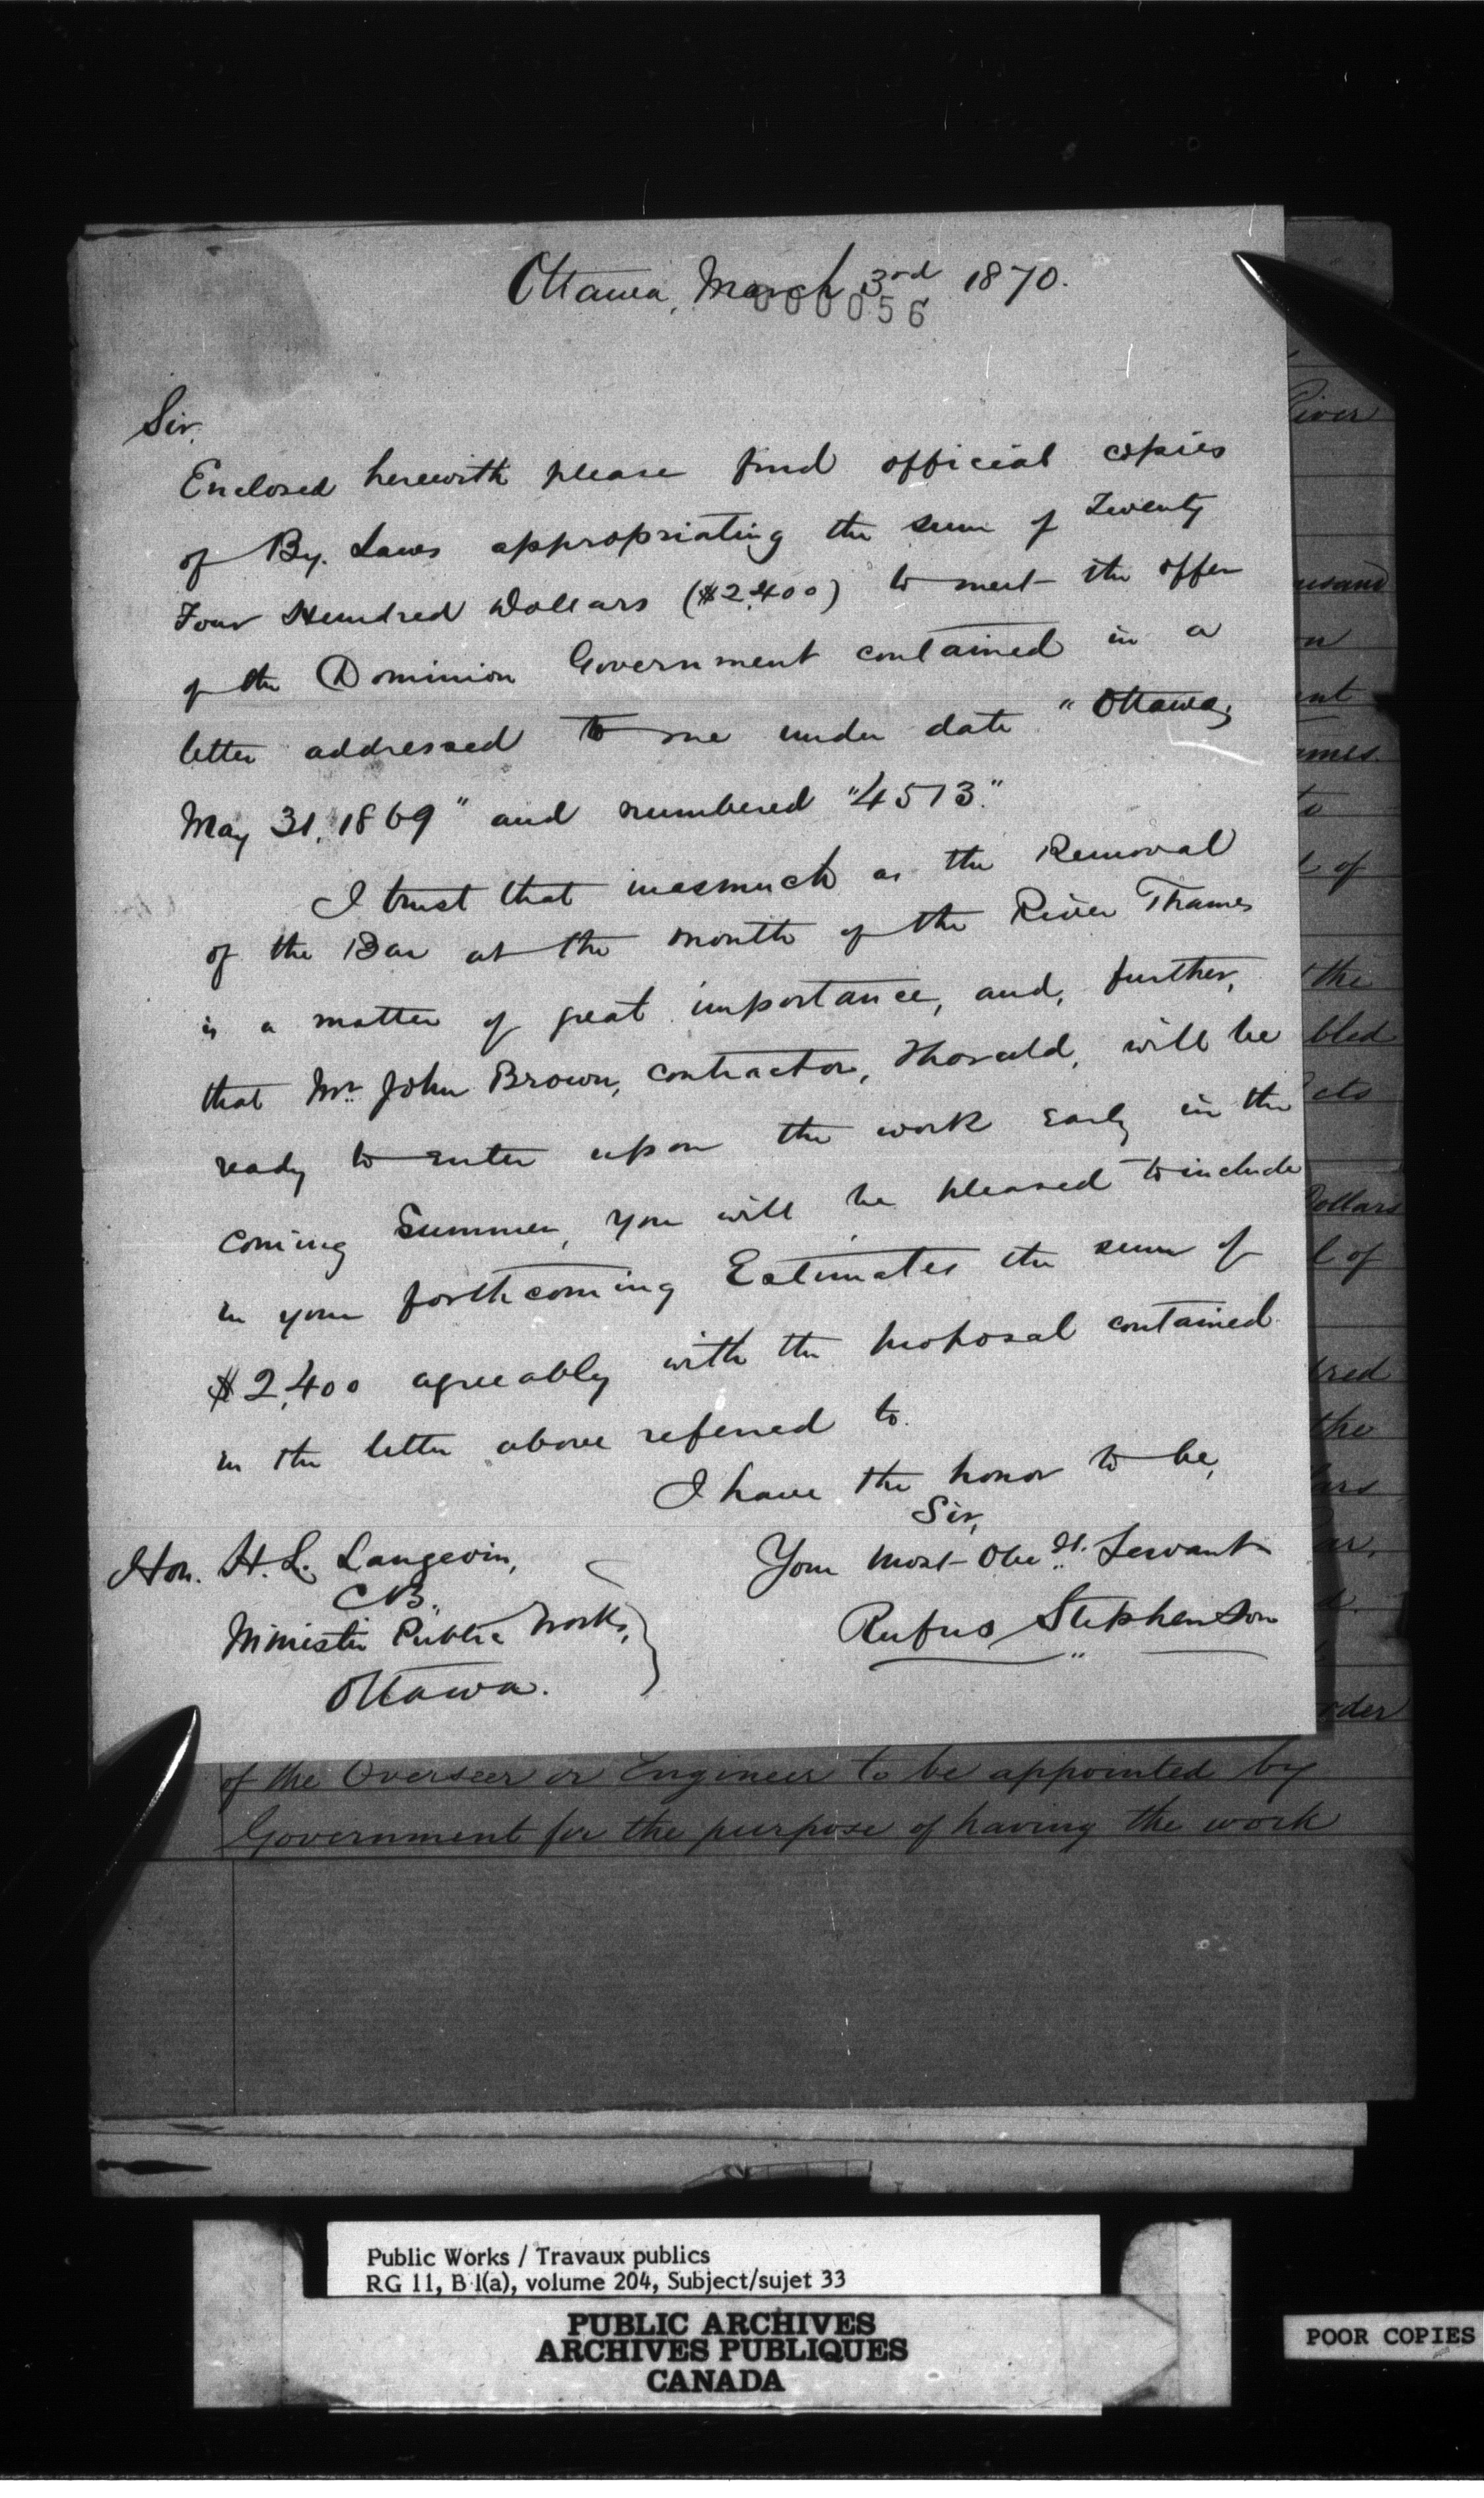 Ottawa, March 3rd 1870.
000056
Sir,
Enclosed herewith please find official copies
of By. Laws appropriating the sum of Twenty
Four Hundred Dollars ($2,400) to meet the offer
of the Dominion Government contained in a
letter addressed to me under date "Ottawa,
May 31, 1869" and numbered "4513."
I trust that inasmuch as the Removal
of the Bar at the mouth of the River Thames
is a matter of great importance, and, further,
that Mr. John Brown, contractor, Thorold, will be
ready to enter upon the work early in the
coming Summer, you will be pleased to include
in your forthcoming Estimates the sum of
$2,400 agreeably with the proposal contained
in the letter above referred to.
I have the honor to be,
Sir,
Your most Obedt. Servant
Rufus Stephenson
Hon. H. L. Langevin,
C.B.
Minister Public Works,
Ottawa.
River
usand
on
ent
ames.
to
l of
the
bled
cts
Dollars
l of
red
the
lars
ar,
rder
of the Overseer or Engineer to be appointed by
Government for the purpose of having the work
Public Works / Travaux publics
RG 11, B 1(a), volume 204, Subject/sujet 33
PUBLIC ARCHIVES
ARCHIVES PUBLIQUES
CANADA
POOR COPIES